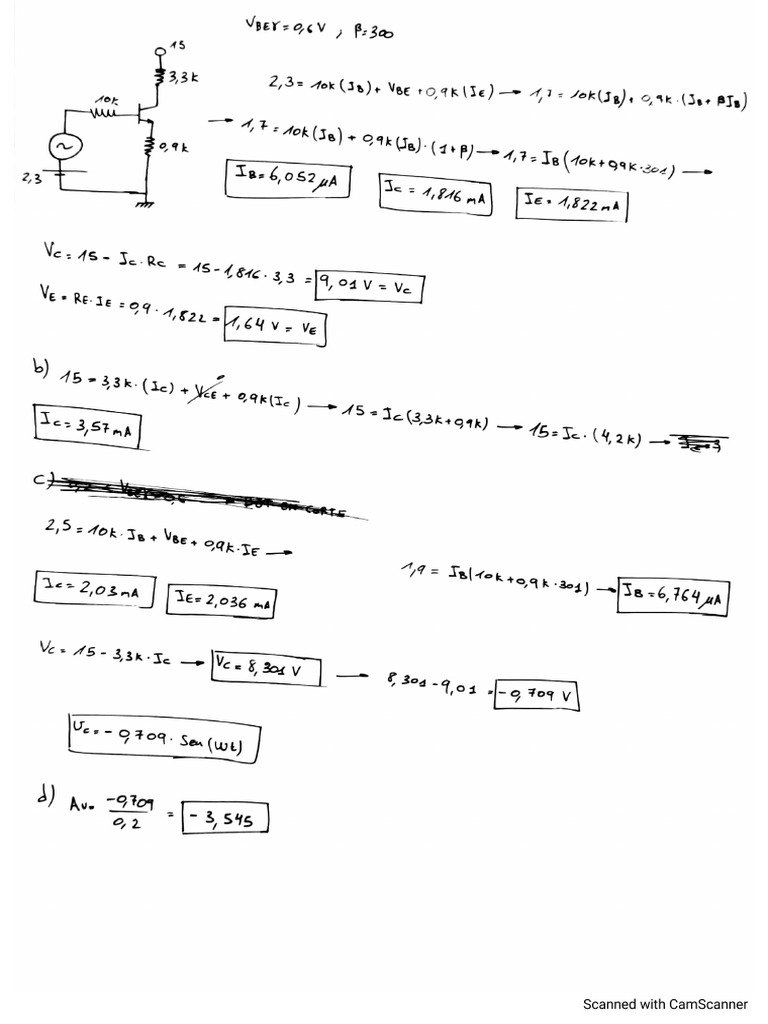 V_BEγ = 0,6V , β=300
15
3,3k
10k
0,9k
2,3
2,3 = 10k(I_B) + V_BE + 0,9k(I_E) → 1,7 = 10k(I_B) + 0,9k·(I_B + βI_B)
→ 1,7 = 10k(I_B) + 0,9k(I_B)·(1+β) → 1,7 = I_B(10k+0,9k·301) →
I_B = 6,052 μA
I_C = 1,816 mA
I_E = 1,822 mA
V_C = 15 - I_C·R_C = 15 - 1,816·3,3 = 9,01 V = V_C
V_E = R_E·I_E = 0,9·1,822 = 1,64 V = V_E
b) 15 = 3,3k·(I_C) + V_CE + 0,9k(I_C) → 15 = I_C(3,3k+0,9k) → 15 = I_C·(4,2k) →
I_C = 3,57 mA
c)
2,5 = 10k·I_B + V_BE + 0,9k·I_E →
1,9 = I_B(10k+0,9k·301) → I_B = 6,764 μA
I_C = 2,03 mA
I_E = 2,036 mA
V_C = 15 - 3,3k·I_C → V_C = 8,301 V → 8,301 - 9,01 = -0,709 V
U_C = -0,709·Sen(Wt)
d) Av = -0,709 / 0,2 = -3,545
Scanned with CamScanner